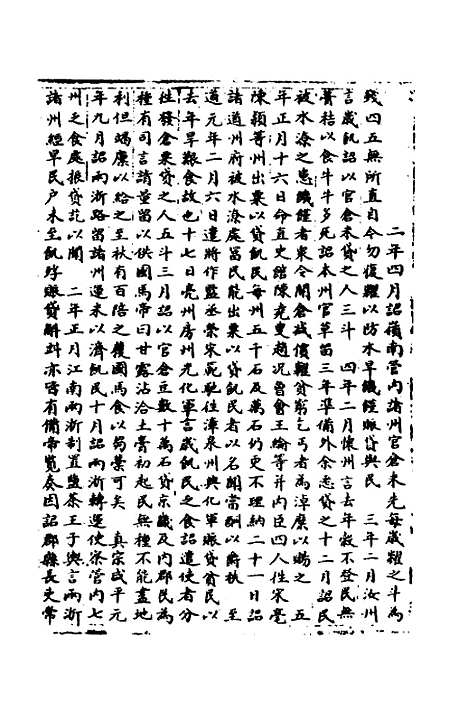 二年四月詔嶺南管内諸州官倉米先每歲糶之斗為
錢四五無所直自今勿復糶以防水旱饑饉賑貸與民　三年二月汝州
言歲飢詔以官倉米貸之人三斗　四年二月懷州言去年穀不登民無
蒭秸以食牛牛多死詔本州官草留三年準備外余悉貸之十二月詔民
被水潦之患饑饉者衆令開倉減價糶貧窮乞丐者為淖糜以賜之　五
年正月十六日命直史館陳堯叟趙況曾會王綸等并内臣四人往宋亳
陳潁等州出粟以貸飢民每州五千石及萬石仍更不理納二十一日詔
諸道州府被水潦處富民能出粟以貸飢民者以名聞當酬以爵秩　至
道元年二月六日遣將作監丞榮宋範馳往漳泉州興化軍賑貸貧民以
去年旱艱食故也十七日亳州房州光化軍言歲飢民之食詔遣使者分
往發倉粟貸之人五斗三月詔以官倉豆數十萬石貸京畿及内郡民為
種有司言請量留以供國馬帝曰甘露沾洽土膏初起民無種不能盡地
利但竭廩以給之至秋有百倍之獲國馬食以蒭藁可矣　真宗咸平元
年九月詔兩浙路留諸州運米以濟飢民十月詔兩浙轉運使察管内七
州之食處振貸訖以聞　二年正月江南兩浙制置鹽茶王子輿言兩浙
諸州經旱民戶未至飢殍賑貸斛㪷亦皆有備帝覽奏因詔郡縣長吏常